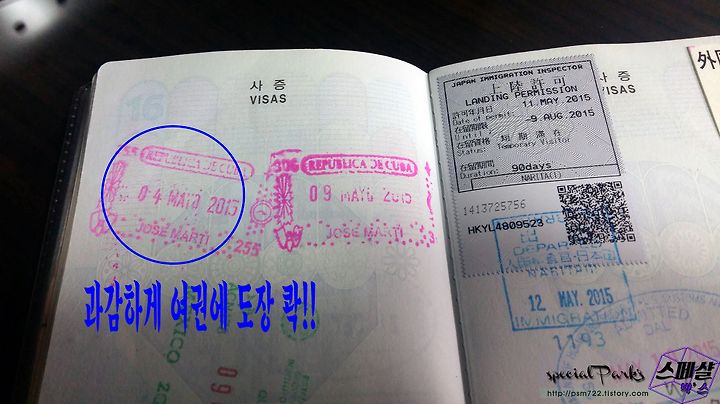 사 증
VISAS
REPUBLICA DE CUBA
04 MAYO 2015
JOSE MARTI
255
306
REPUBLICA DE CUBA
09 MAYO 2015
JOSE MARTI
과감하게 여권에 도장 콱!!
09
JAPAN IMMIGRATION INSPECTOR
上陸許可
LANDING PERMISSION
許可年月日
Date of permit:
11.MAY.2015
在留期限
Until:
-9.AUG.2015
在留資格
短期滞在
Status:
Temporary Visitor
在留期間
Duration:
90days
NARITA(1)
1413725756
HKYU4809523
사 증
DEPARTED
NARITA
12. MAY. 2015
IMMIGRATION
1193
外
special Parks
스페샬
박's
http://psm722.tistory.com